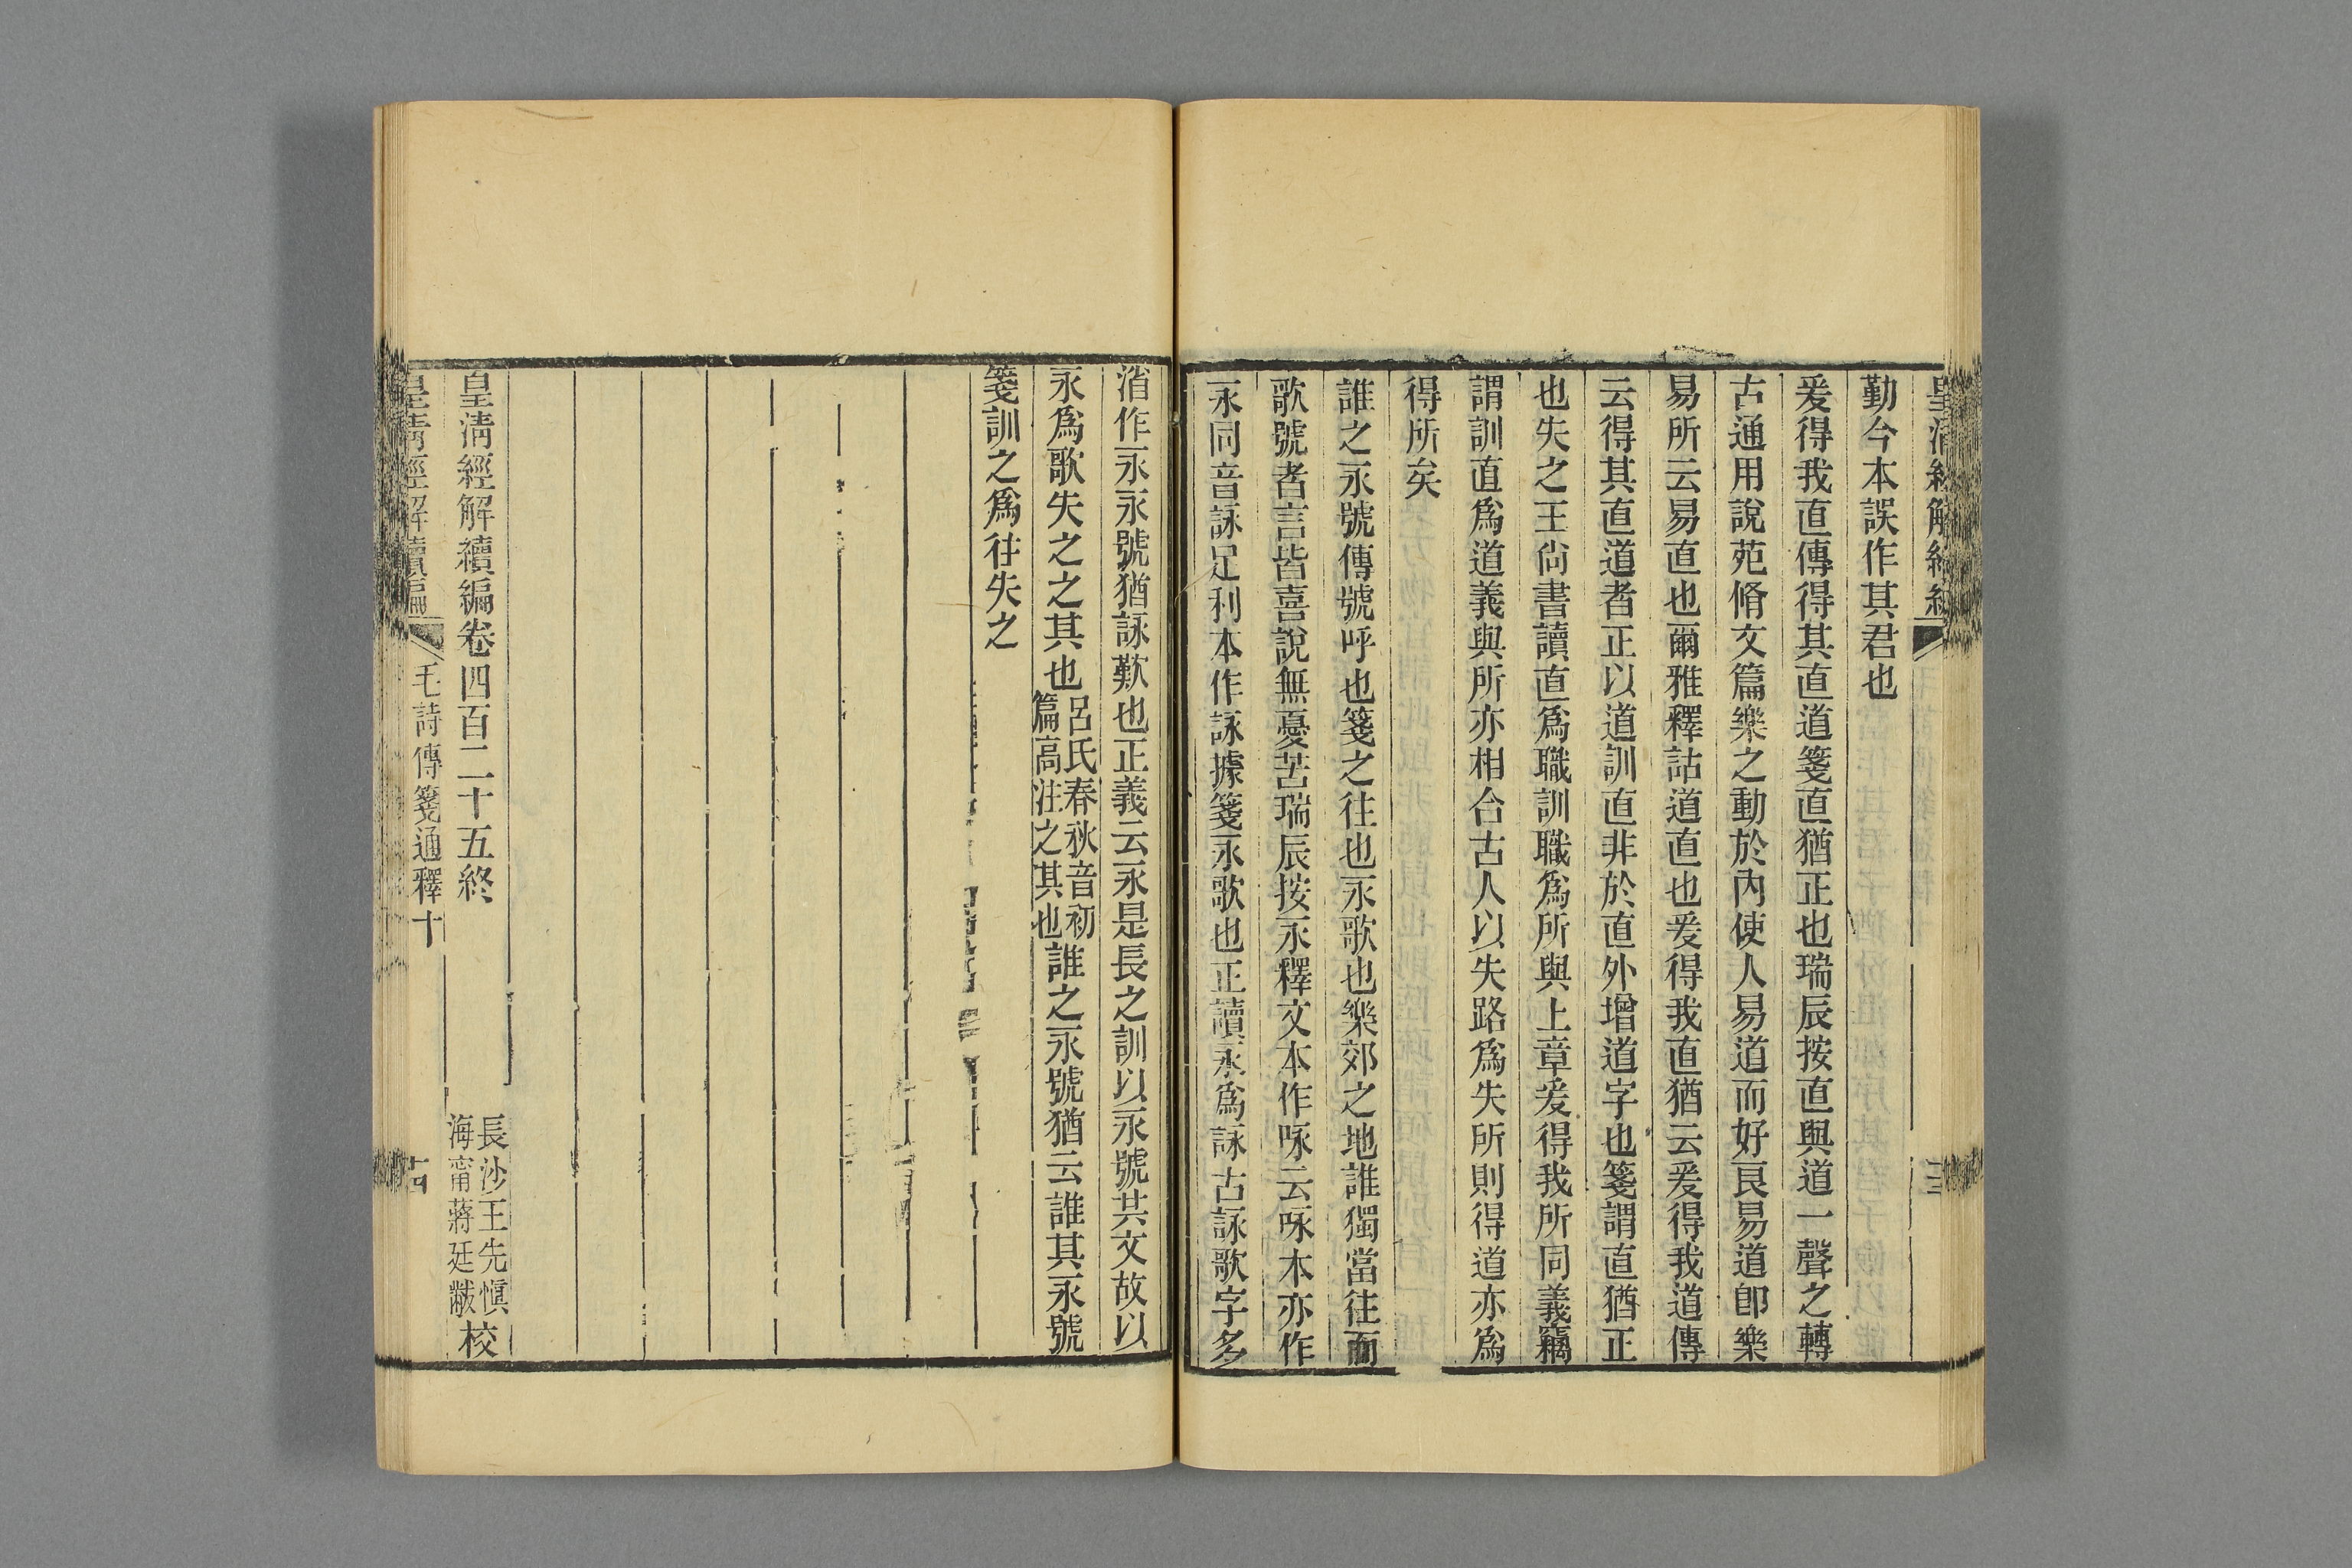 皇清經解續編
勤今本誤作其君也
爰得我直傳得其直道箋直猶正也瑞辰按直與道一聲之轉
古通用說苑脩文篇樂之動於內使人易道而好良易道卽樂
易所云易直也爾雅釋詁道直也爰得我直猶云爰得我道傳
云得其直道者正以道訓直非於直外增道字也箋謂直猶正
也失之王尙書讀直爲職訓職爲所與上章爰得我所同義竊
謂訓直爲道義與所亦相合古人以失路爲失所則得道亦爲
得所矣
誰之永號傳號呼也箋之往也永歌也樂郊之地誰獨當往而
歌號者言皆喜說無憂苦瑞辰按永釋文本作咏云咏本亦作
永同音詠足利本作詠據箋永歌也正讀永爲詠古詠歌字多
渻作永永號猶詠歎也正義云永是長之訓以永號共文故以
永爲歌失之之其也呂氏春秋音初篇高注之其也誰之永號猶云誰其永號
箋訓之爲往失之
皇淸經解續編卷四百二十五終
長沙王先愼
海甯蔣廷黻校
皇清經解續編 毛詩傳箋通釋十 十四